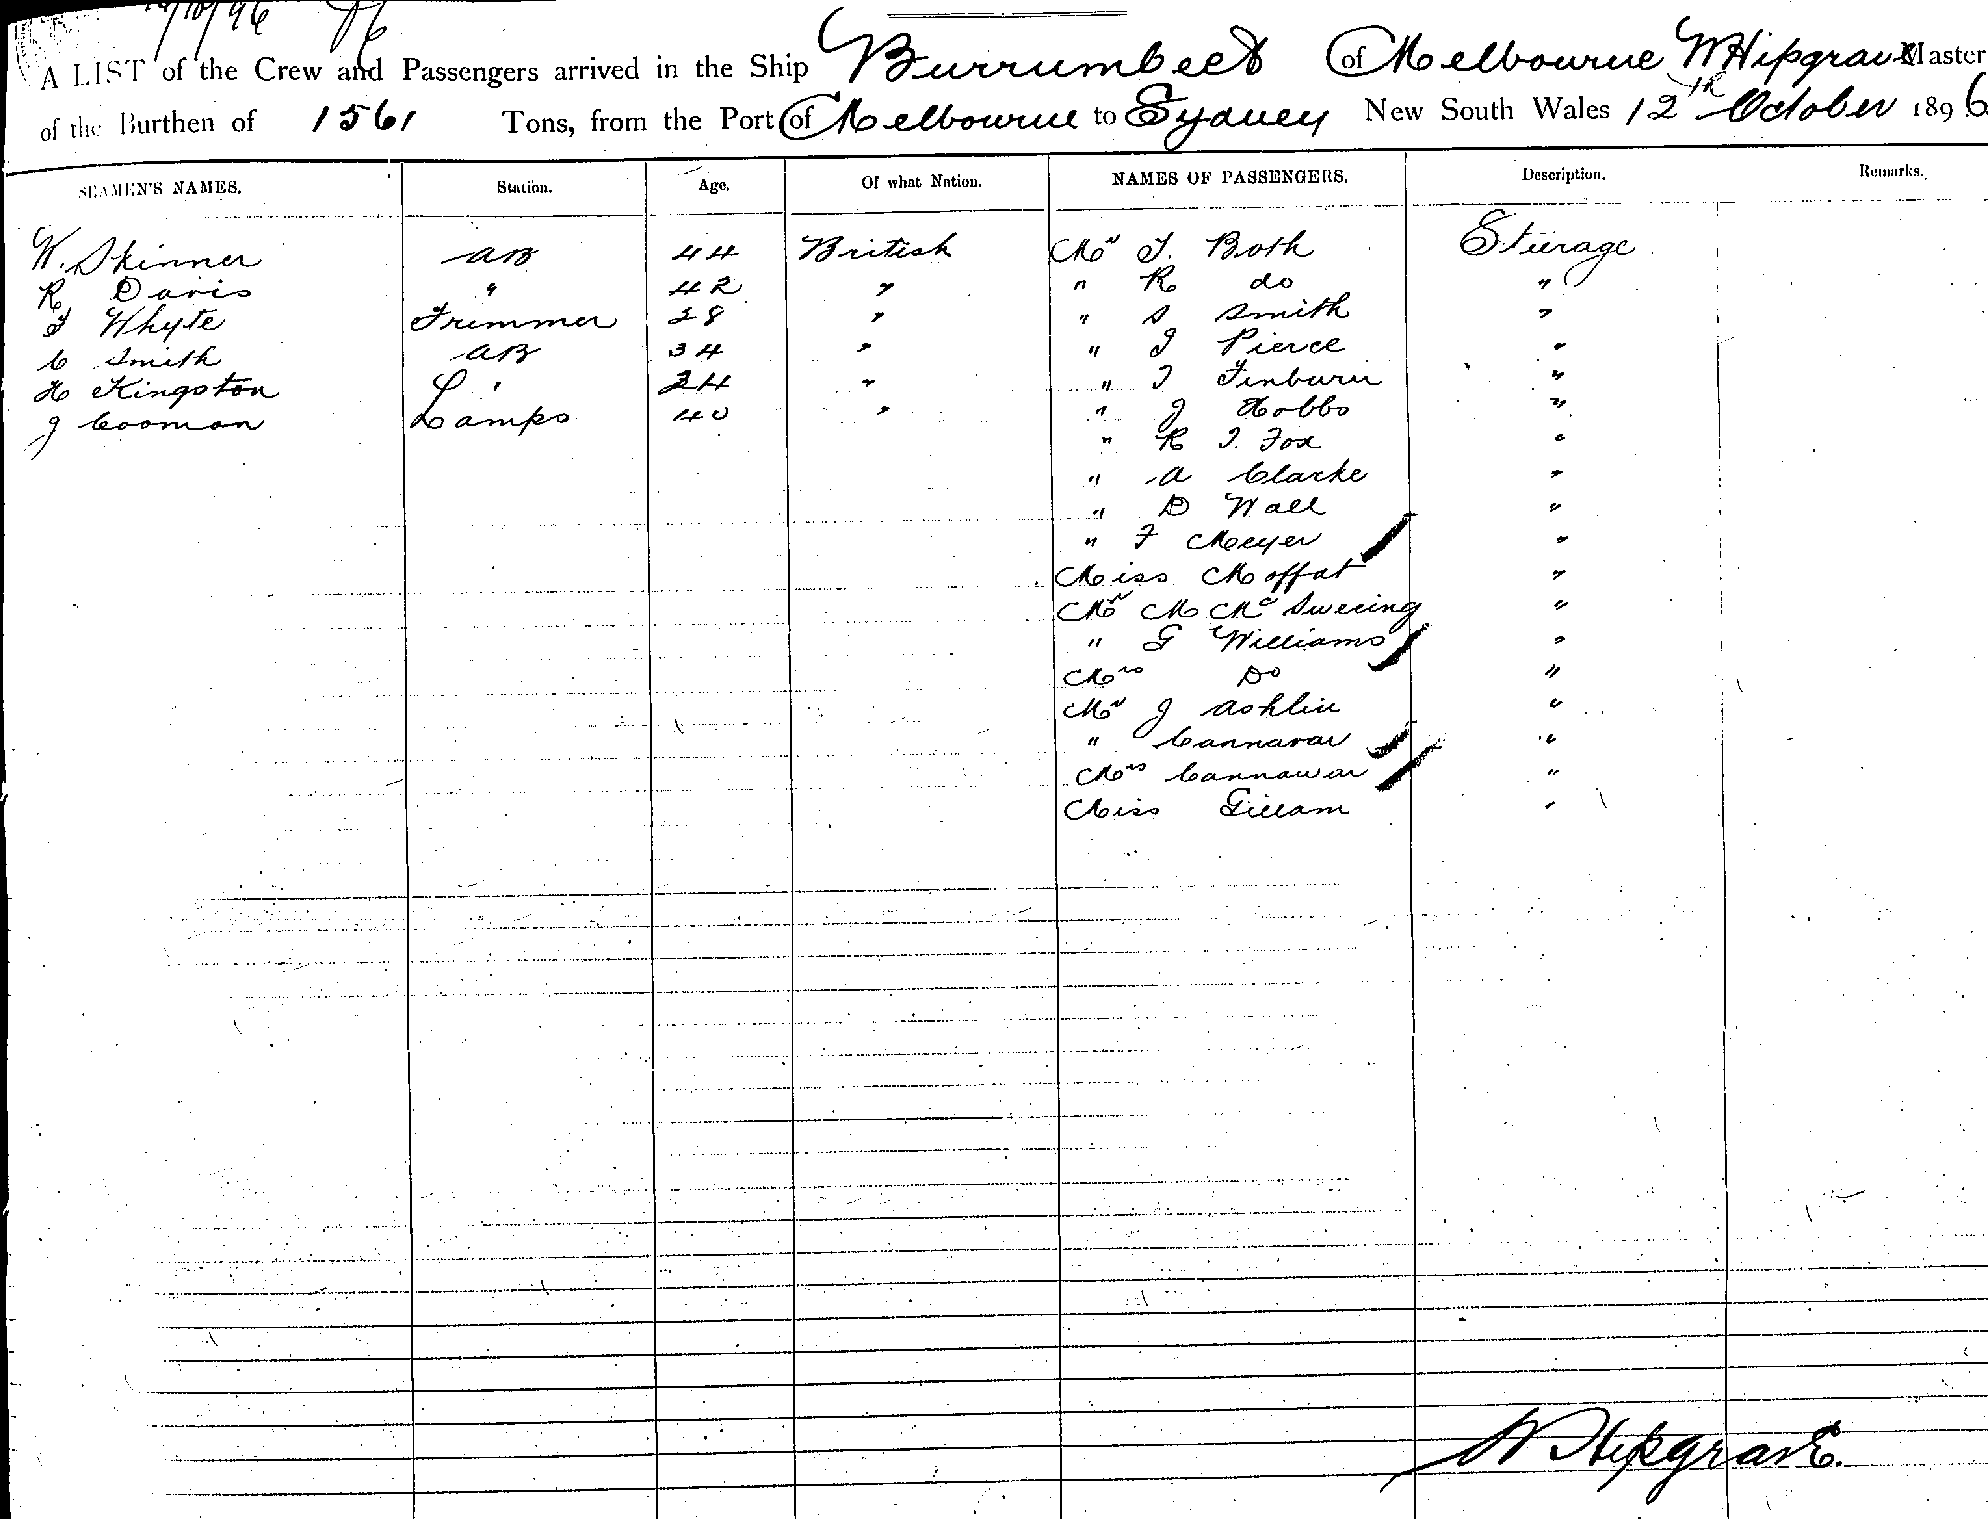 12/10/96
A LIST of the Crew and Passengers arrived in the Ship Burrumbeet of Melbourne W Hipgrave Master
of the Burthen of 1561 Tons, from the Port of Melbourne to Sydney New South Wales 12th October 1896
SEAMEN'S NAMES. Station. Age. Of what Nation. NAMES OF PASSENGERS. Description. Remarks.
W. Skinner AB 44 British Mr T. Both Steerage
R Davis " 42 " " R do "
T Whyte Trimmer 28 " " S Smith "
C Smith AB 34 " " J Pierce "
H Kingston " 24 " " T Finburn "
J Cooman Lamps 40 " " J Hobbs "
" R T. Fox "
" A Clarke "
" D Wall "
" F Meyer "
Miss Moffat "
Mr M Mc Sweeing "
" G Williams "
Mrs Do "
Mr J Ashlin "
" Cannavar "
Mrs Cannawar "
Miss Gillam "
W Hipgrave.